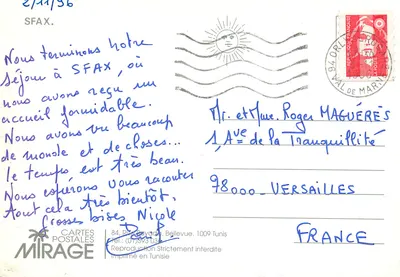 2/11/96
SFAX.
Nous terminons notre
séjour à SFAX, où
nous avons reçu un
accueil formidable.
Nous avons vu beaucoup
de monde et de choses...
le temps est très beau.
Nous espérons vous raconter
tout cela très bientôt.
Grosses bises Nicole
94 ORLY
VAL DE MARNE
Mr. et Mme. Roger MAGUÉRÈS
1, Ave de la Tranquillité
78000 - VERSAILLES
FRANCE
CARTES
POSTALES
MIRAGE
Bellevue. 1009 Tunis
Reproduction Strictement interdite
Imprimé en Tunisie